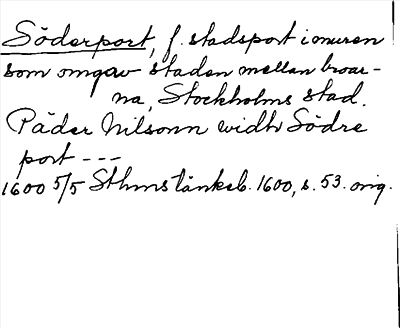 Söderport, f. stadsport i muren
som omgav staden mellan broar-
na, Stockholms stad.
Päder Nilsonn widh Södre
port ---
1600 5/5 Sthms tänkeb. 1600, s. 53. orig.